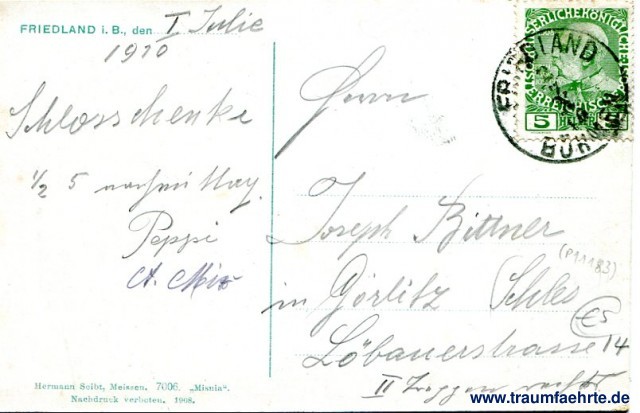 FRIEDLAND i. B., den I Julie
1910
Schlosschenke
1/2 5 nachmittag.
Peppi
Herrn
Joseph Bittner
in Görlitz Schles
Löbauerstrasse 14
II Treppen rechts
KAISERLICHEKÖNIGLICHE
5
FRIEDLAND
(P11183)
€5
Hermann Seibt, Meissen. 7006. „Misnia“.
Nachdruck verboten. 1908.
www.traumfaehrte.de